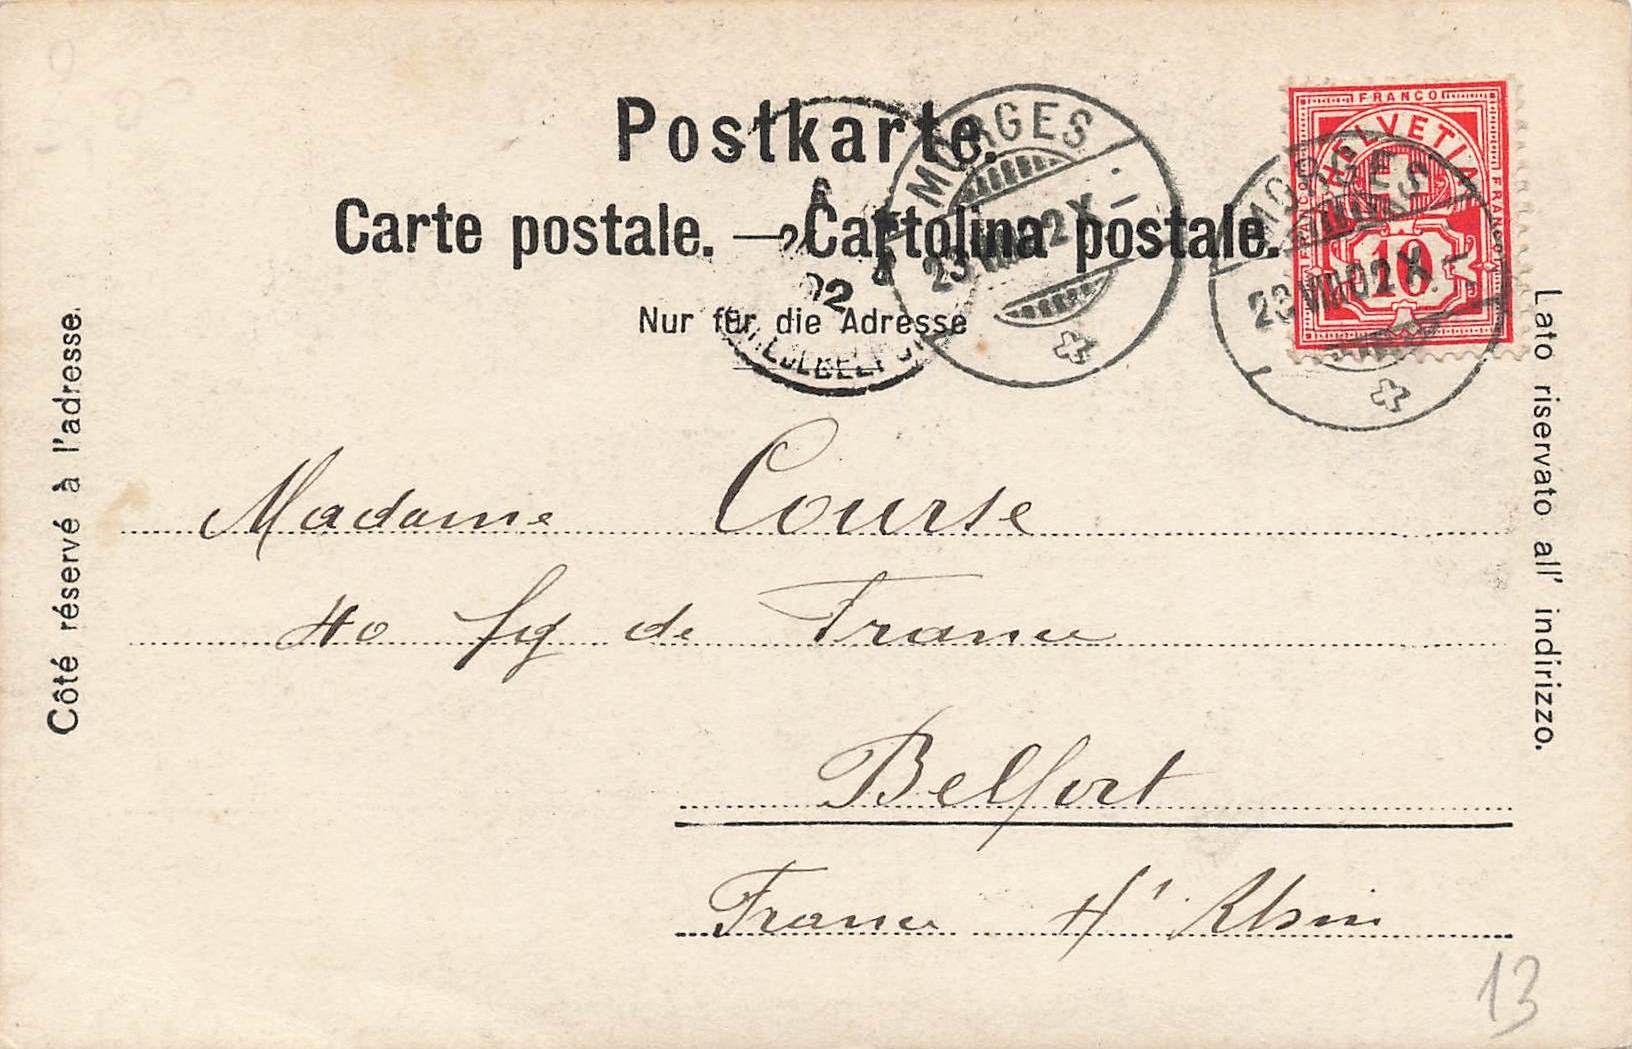 Postkarte.
Carte postale. — Cartolina postale.
Nur für die Adresse
Côté réservé à l'adresse.
Lato riservato all' indirizzo.
FRANCO
HELVETIA
10
MORGES
23 VIII 02 X
MORGES
23 VIII 02 X
02
BELFORT
Madame Course
40 fg de France
Belfort
France Ht Rhin
13